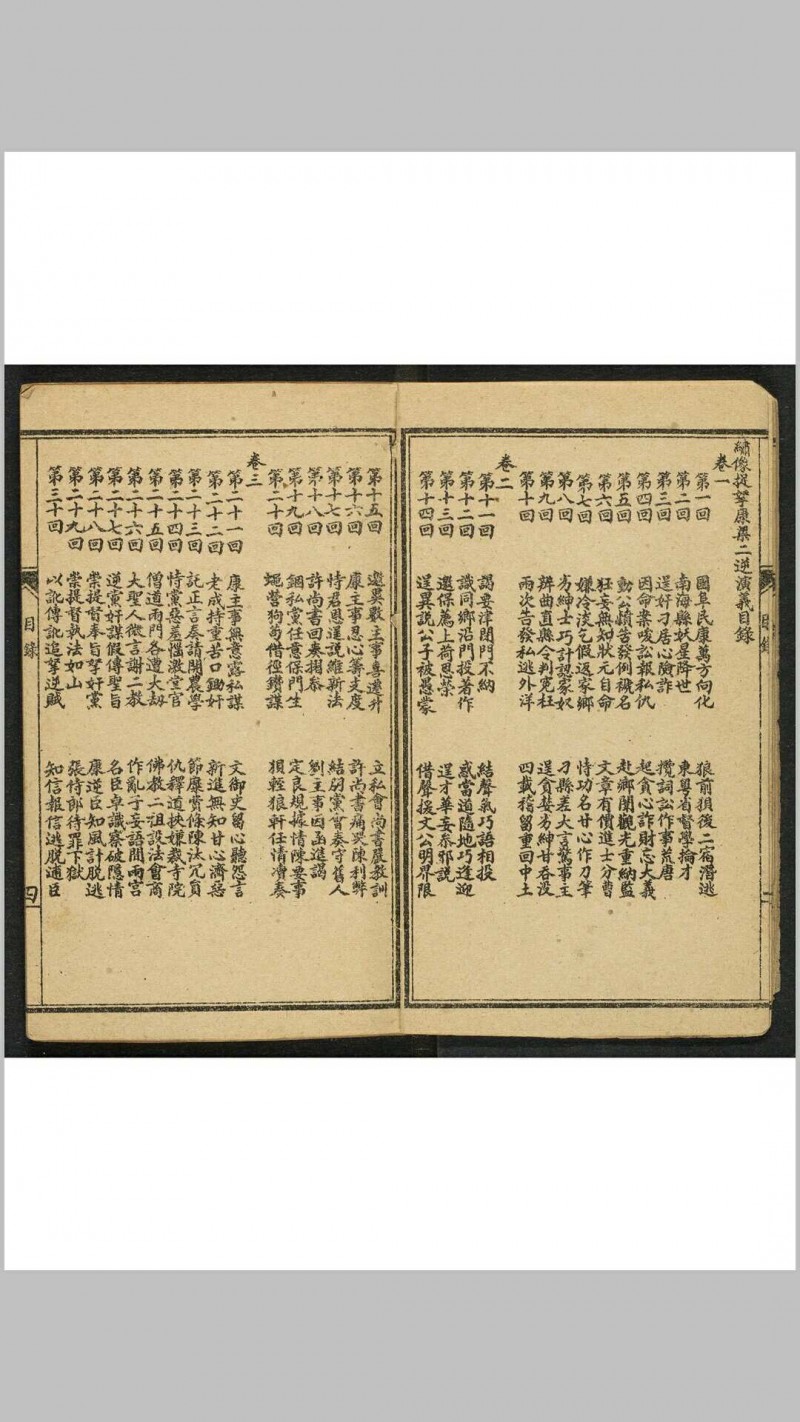 繡像捉拏康梁二逆演義目錄
卷一
第一回 國阜民康萬方向化 狼前狽後二宿潛逃
第二回 南海縣妖星降世 東粵省督學掄才
第三回 逞奸刁居心險詐 攬詞訟作事荒唐
第四回 因命案唆訟報私仇 起貪心詐財忘大義
第五回 動公憤苦發例穢名 赴鄉闈觀光重納監
第六回 狂妄無知狀元自命 文章有價進士分曹
第七回 嫌冷淡乞假返家鄉 恃功名甘心作刀筆
第八回 劣紳士巧計認家奴 刁縣差大言驚事主
第九回 辨曲直縣令判冤枉 逞貪婪劣紳甘吞沒
第十回 兩次告發私逃外洋 四載稽留重回中土
卷二
第十一回 謁要津閉門不納 結聲氣巧語相投
第十二回 識同鄉沿門投著作 惑當道隨地巧逢迎
第十三回 邀保薦上荷恩榮 逞才華妄參邪說
第十四回 逞異說公子被愚蒙 借聲援文公明界限
目錄
第十五回 邀異數主事喜遷升 立私會尚書嚴教訓
第十六回 康主事悉心籌支度 許尚書痛哭陳利弊
第十七回 恃君恩逞說維新法 結朋黨冒奏守舊人
第十八回 許尚書回奏摺參 劉主事因函進謁
第十九回 錮私黨任意保門生 定良規據情陳要事
第二十回 蠅營狗苟借徑鑽謀 狽輕狼軒任情凟奏
卷三
第二十一回 康主事無意露私謀 文御史留心聽怨言
第二十二回 老成持重苦口鋤奸 新進無知甘心濟惡
第二十三回 託正言奏請開農學 節靡費條陳汰冗員
第二十四回 恃黨惡羞惱激堂官 仇釋道挾嫌裁寺院
第二十五回 僧道兩門各遭大劫 佛教二祖設法會商
第二十六回 大聖人微言謝二教 作亂子妄語間兩宮
第二十七回 逆黨奸謀假傳聖旨 名臣卓識察破隱情
第二十八回 崇提督奉旨拏奸黨 康逆臣知風計脫逃
第二十九回 崇提督執法如山 張侍郎待罪下獄
第三十回 以訛傳訛追拏逆賊 知信報信逃脫逋臣
目錄
四